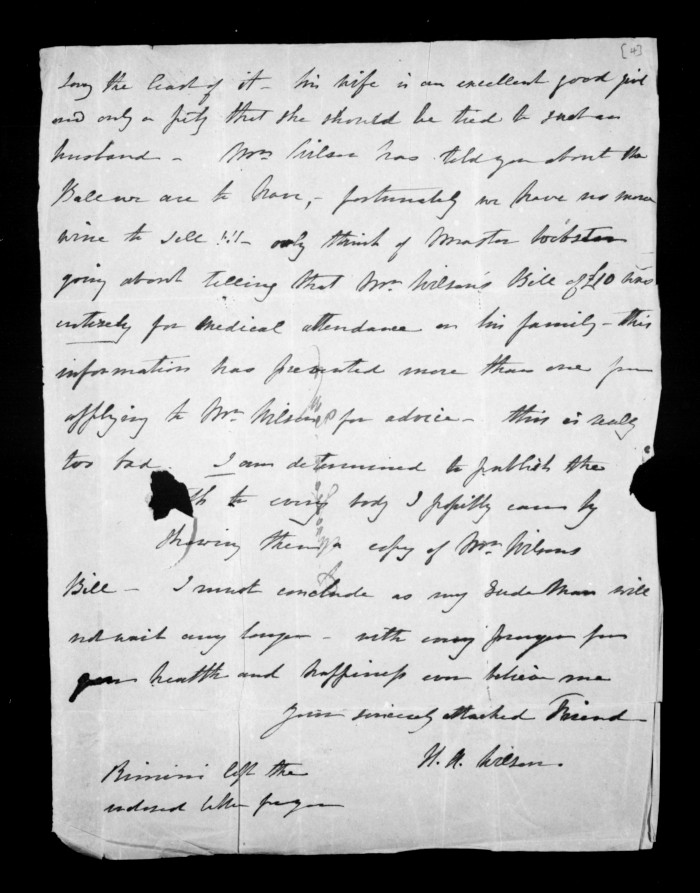 [4]
Say the least of it - his wife is an excellent good girl
and only a pity that she should be tied to such an
husband - Mrs Wilson has told you about the
Ball we are to have, - fortunately we have no more
wine to sell !!! - only think of Master Webster
going about telling that Mr Wilson's Bill of £10 was
entirely for medical attendance on his family - this
information has prevented more than one from
applying to Mr Wilson for advice - this is really
too bad. I am determined to publish the
th to every body I possibly can by
showing them a copy of Mr Wilsons
Bill - I must conclude as my
will
not wait any longer - with every prayer for
your health and happiness ever believe me
Your sincerely attached Friend
H. A. Wilson.
left the
enclosed letter for you